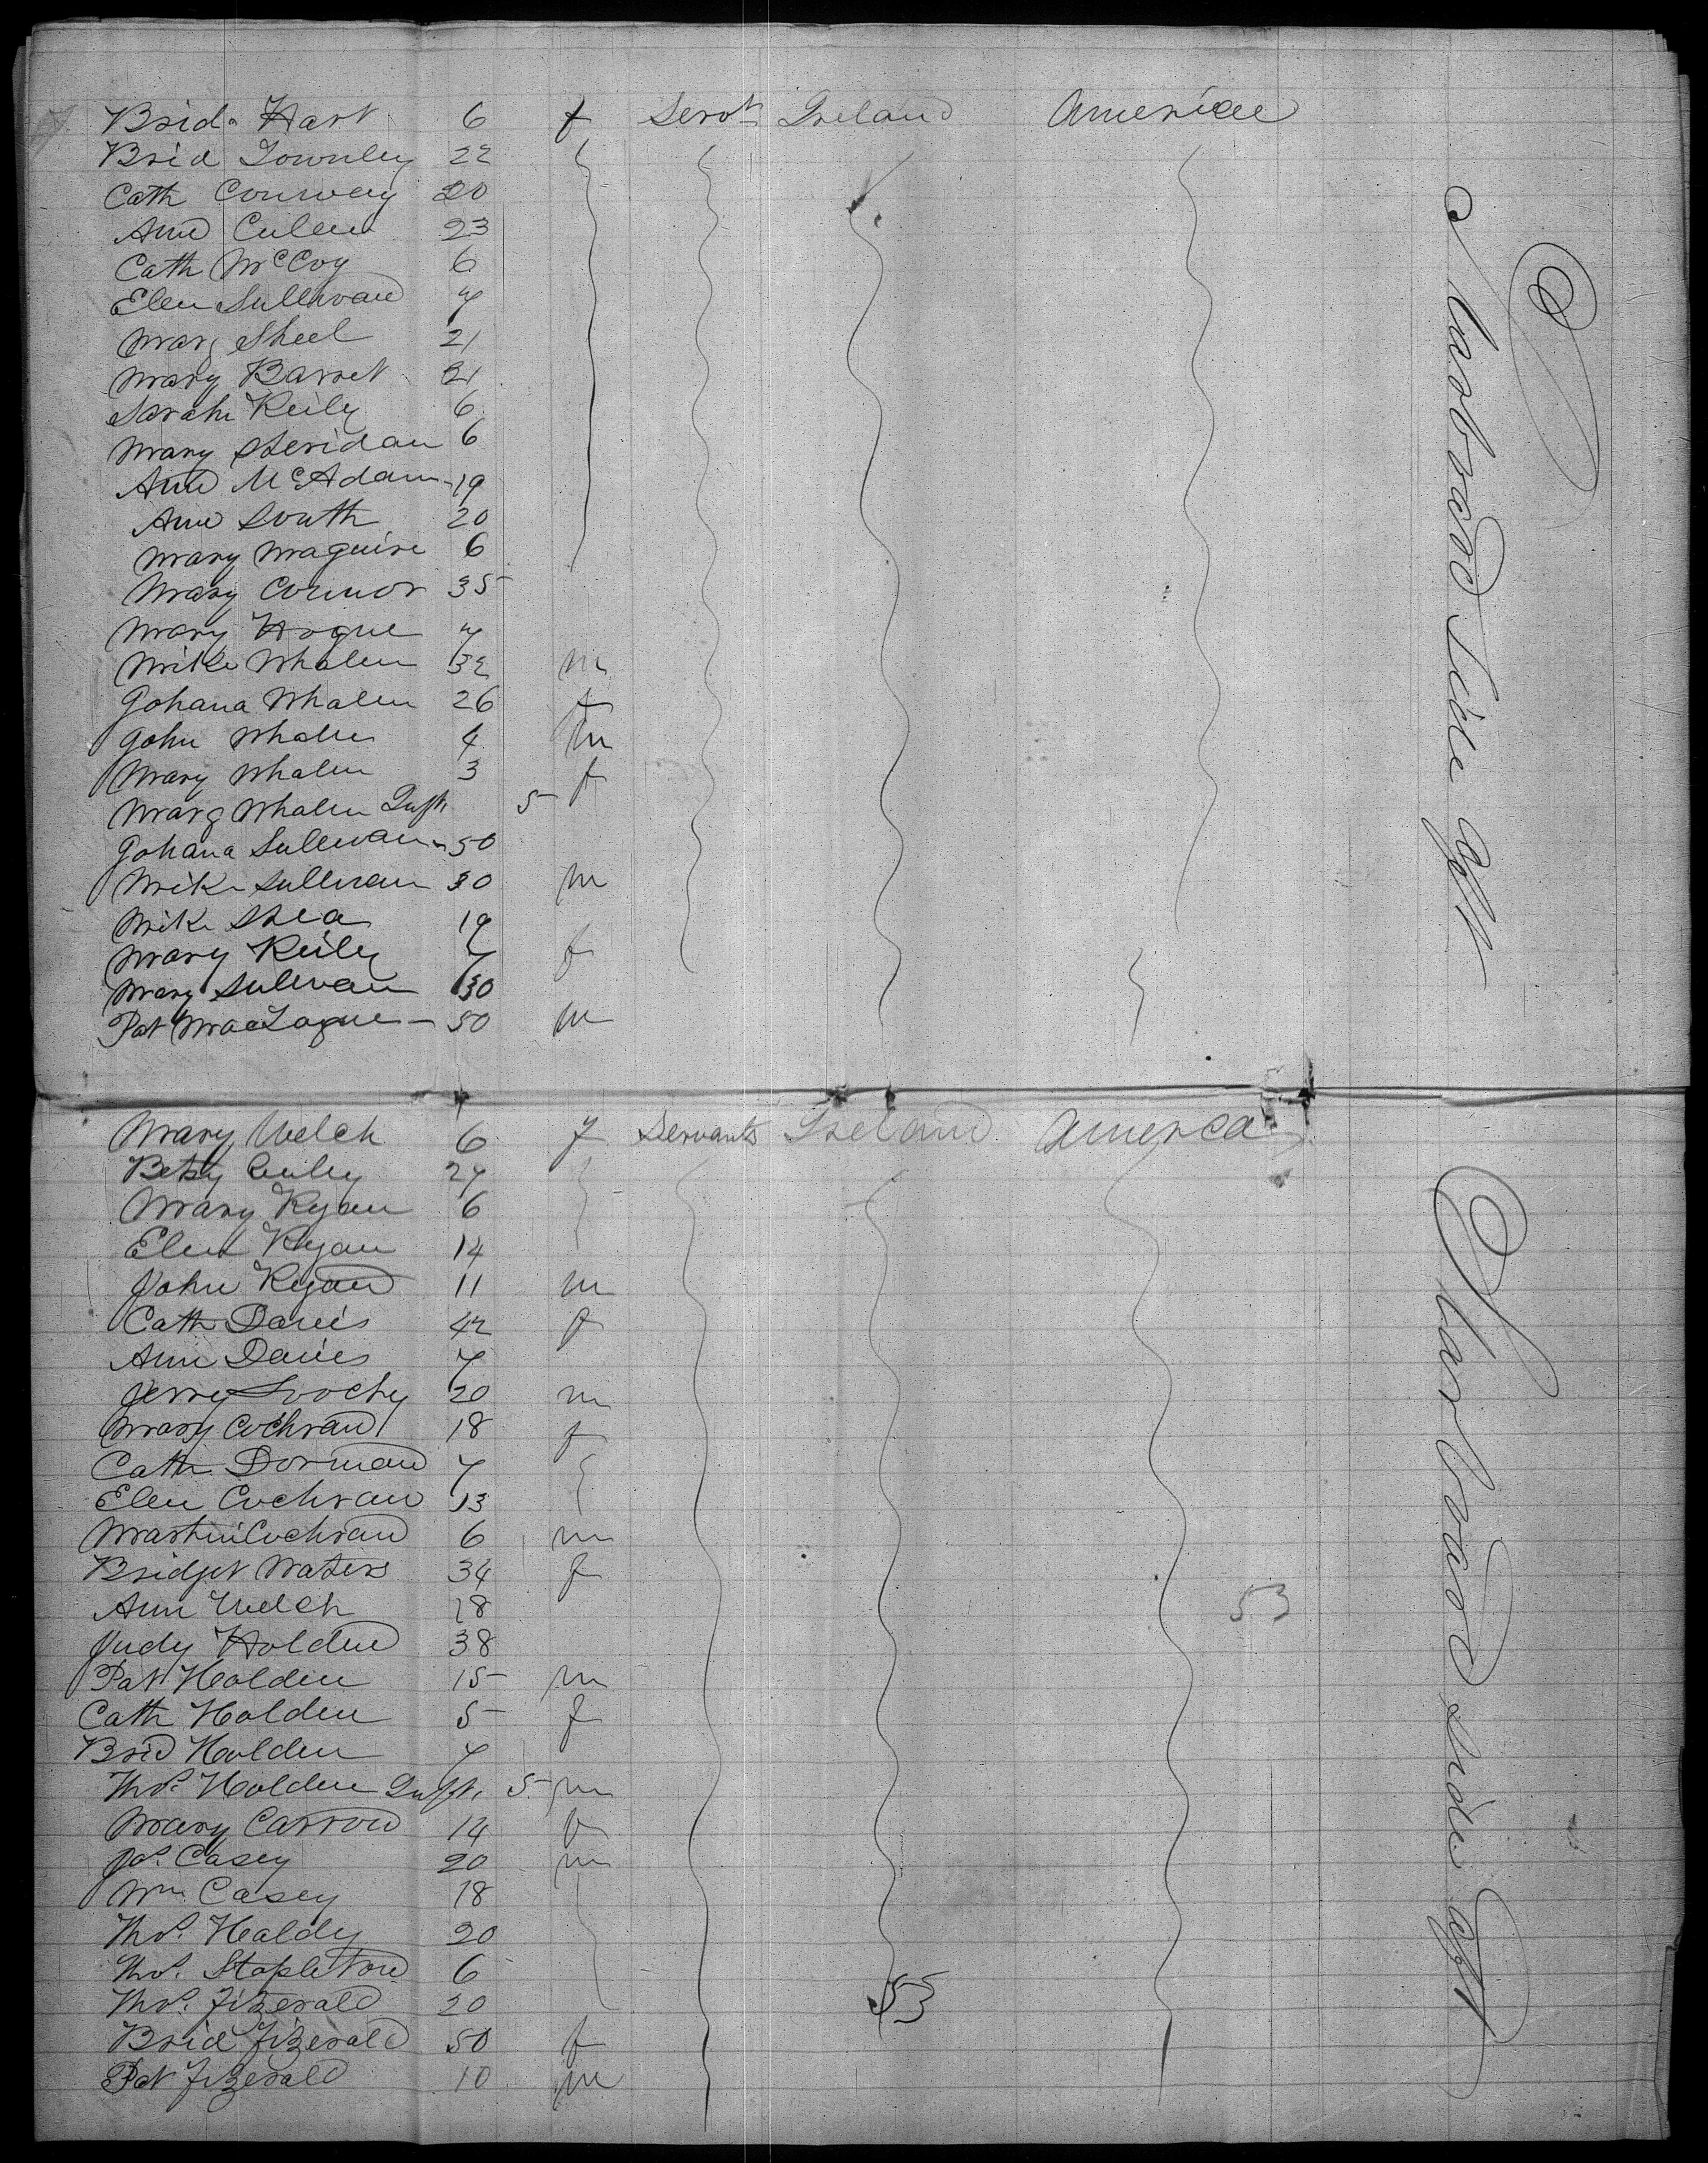 Brid. Hart 6 f Servt Ireland America
Brid Townley 22
Cath Conway 20
Ann Culen 23
Cath McCoy 6
Elen Sullivan 7
Marg Sheel 21
Mary Barret 21
Sarah Reily 6
Mary Sheridan 6
Ann McAdam 19
Ann South 20
Mary Maguire 6
Mary Connor 35
Mary Hogue 7
Mike Whalen 32 m
Johana Whalen 26 f
John Whalen 4 m
Mary Whalen 3 f
Marg Whalen Inft. 5
Johana Sullivan 50
Mike Sullivan 30 m
Mike Shea 19
Mary Reily 7 f
Mary Sulivan 30
Pat 50 m
Starboard Side Aft
Mary Welch 6 f Servants Ireland America
Betsy 27
Mary Ryan 6
Elen Ryan 14
John Ryan 11 m
Cath Davis 42 f
Ann Davies 7
Jerry 20 m
Mary Cochran 18 f
Cath Dorman 7
Elen Cochran 13
Martin Cochran 6 m
Bridget Waters 34 f
Ann Welch 18
53
Judy Holden 38
Pat Holden 15 m
Cath Holden 5 f
Brid Holden 7
Thos. Holden Inft. 5 m
Mary Carrow 14 f
Jas. Casey 20 m
Wm Casey 18
Thos. Healdy 20
Thos. Stapleton 6
Thos. Fizerald 20
53
Brid Fizerald 50 f
Pat Fizerald 10 m
Starboard Side Aft